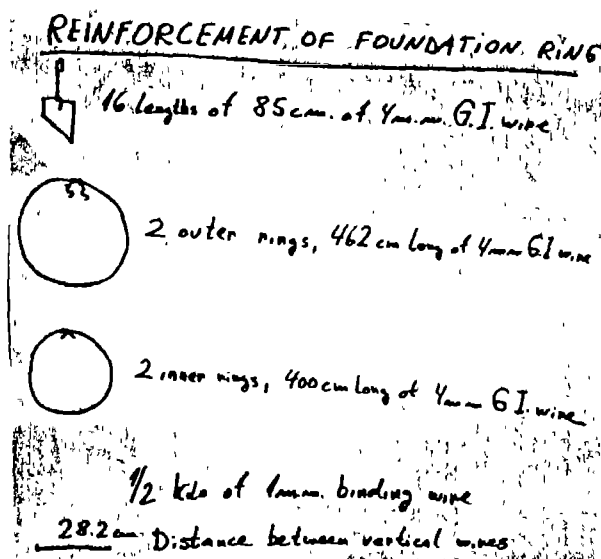 REINFORCEMENT OF FOUNDATION RING
16 lengths of 85cm. of 4m.m. G.I. wire
2 outer rings, 462 cm long of 4mm G.I wire
2 inner rings, 400 cm long of 4mm G I. wire
1/2 kilo of 1m.m. binding wire
28.2 cm Distance between vertical wires